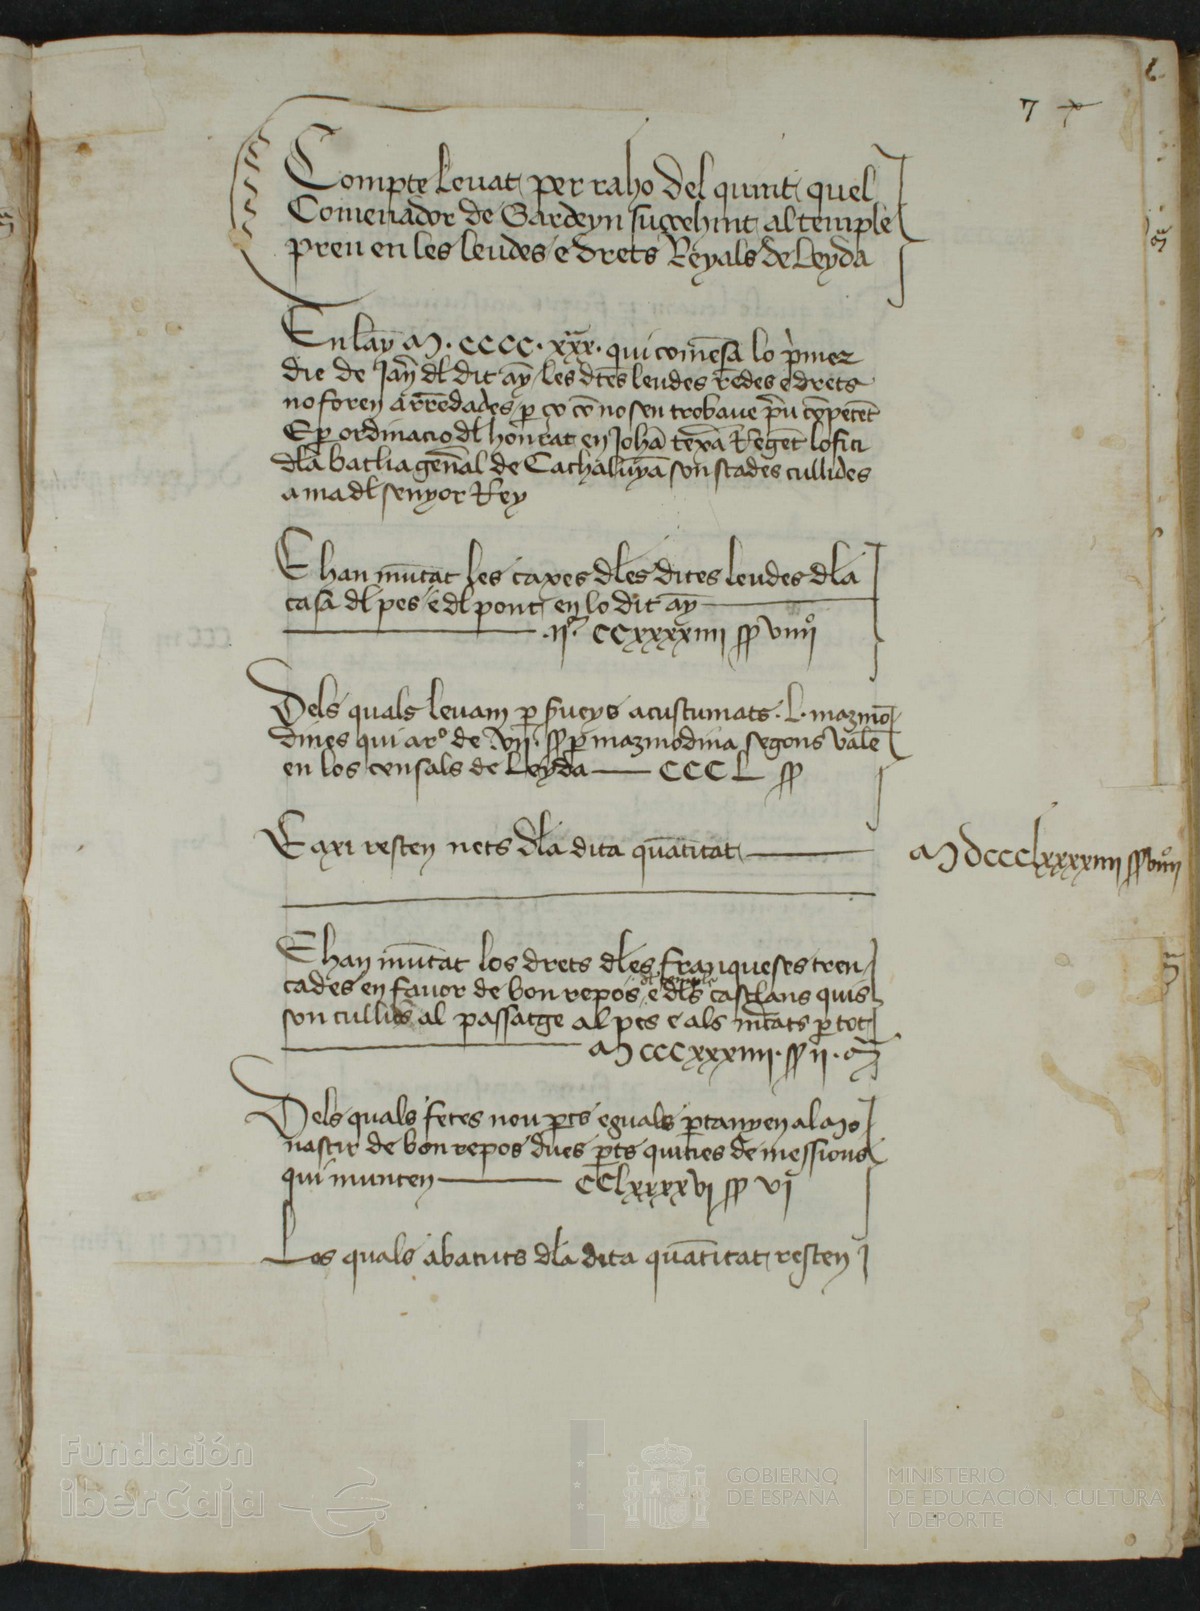 7
Compte leuat per raho del quint quel
Comenador de Gardeyn succehint al temple
pren en les leudes e drets Reyals de Leyda
En lāy M·CCCC·xxx· qui comēsa lo p̄mer
die de Jaň dl dit aȳ les dt̄es leudes rēdes e drets
no foren arrēdades p̱ ço cō no sen trobaue p̄u cōpetēt
E p̱ ordinacio dl honrat en Johā texā Regēt lofici
dla batlia gen̄al de Cathaluȳa son stades cullides
a ma dl senyor Rey
E han mūtat les caxes dles dites leudes dla
casa dl pes e dl pont en lo dit aȳ
·ij· CCxxxxiiii ss viiii
Dels quals leuam p̱ acustumats ·L· mazmo
dines qui a rº de vii· ss p̱ mazmodina segons valē
en los censals de Leyda CCCL ss
E axi resten nets dla dita quātitat
M dccclxxxxiiii ss viiii
E han mūtat los drets dles franqueses tren
cades en fauor de bon repos e dls castlans quis
dl temple
son cullids al passatge al pes e als mc̄ats p̱ tot
M CCCxxxiiii· ss ii·
Dels quals fetes nou p̱ts eguals p̱tanyen al Mo
nastir de bon repos dues p̱ts quities de messions
qui munten CClxxxxvj ss vj
Los quals abatuts dla dita quātitat resten
Fundación
iberCaja
GOBIERNO
DE ESPAÑA
MINISTERIO
DE EDUCACIÓN, CULTURA
Y DEPORTE